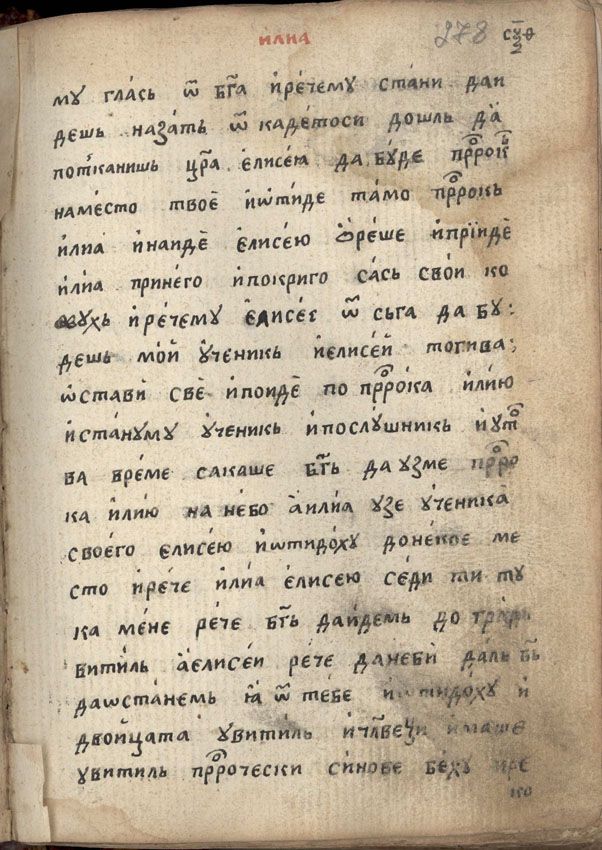 илиа
278
му гла́сь ѿ бг҃а и҆ре́чему ста́ни даи
дешь наза́ть ѿ каде́тоси дошль да̀
пот̾канишь цр҃а є҆лисе́ю да бꙋ́де прⷪ҇рокь
наме́сто твоѐ и҆ѡти́де та́мо прⷪ҇рокь
и҆лиа и҆наидѐ є҆лисе́ю ѻ҆ре́ше и҆прїидѐ
и҆ли́а прине́го и҆покриго са́сь сво́и ко
жꙋхь и҆ре́чему є҆лисее ѿ сьга да бꙋ:
дешь мо́й ᲂу҆ченикь и҆єлисе́й тогива:
ѡ҆ставѝ свѐ и҆поидѐ по прⷪ҇ро́ка и҆ли́ю
и҆ста́нуму ᲂу҆ченикь и҆послꙋ́шникь и҆утⷪ҇
ва вре́ме сакаше бг҃ь да узме прⷪ҇ро
ка и҆ли́ю на не́бо а҆или́а узе ᲂу҆ченика̀
своего є҆лисе́ю и҆ѡтидо́ху доне́кое ме
сто и҆ре́че и҆ли́а є҆лисею се́ди ти ту
ка ме́не ре́че бг҃ь даи́демь до гра́дь
вити́ль а҆єлисеи ре́че да́небѝ да́ль бг҃ь
даѡста́немь ꙗ҆ ѿ те́бе и҆ѡтидо́ху и҆
двои́цата увити́ль и҆чл҃веци и҆маше
ꙋвитиль прⷪ҇рочески си́нове бе́ху и҆ре
ко